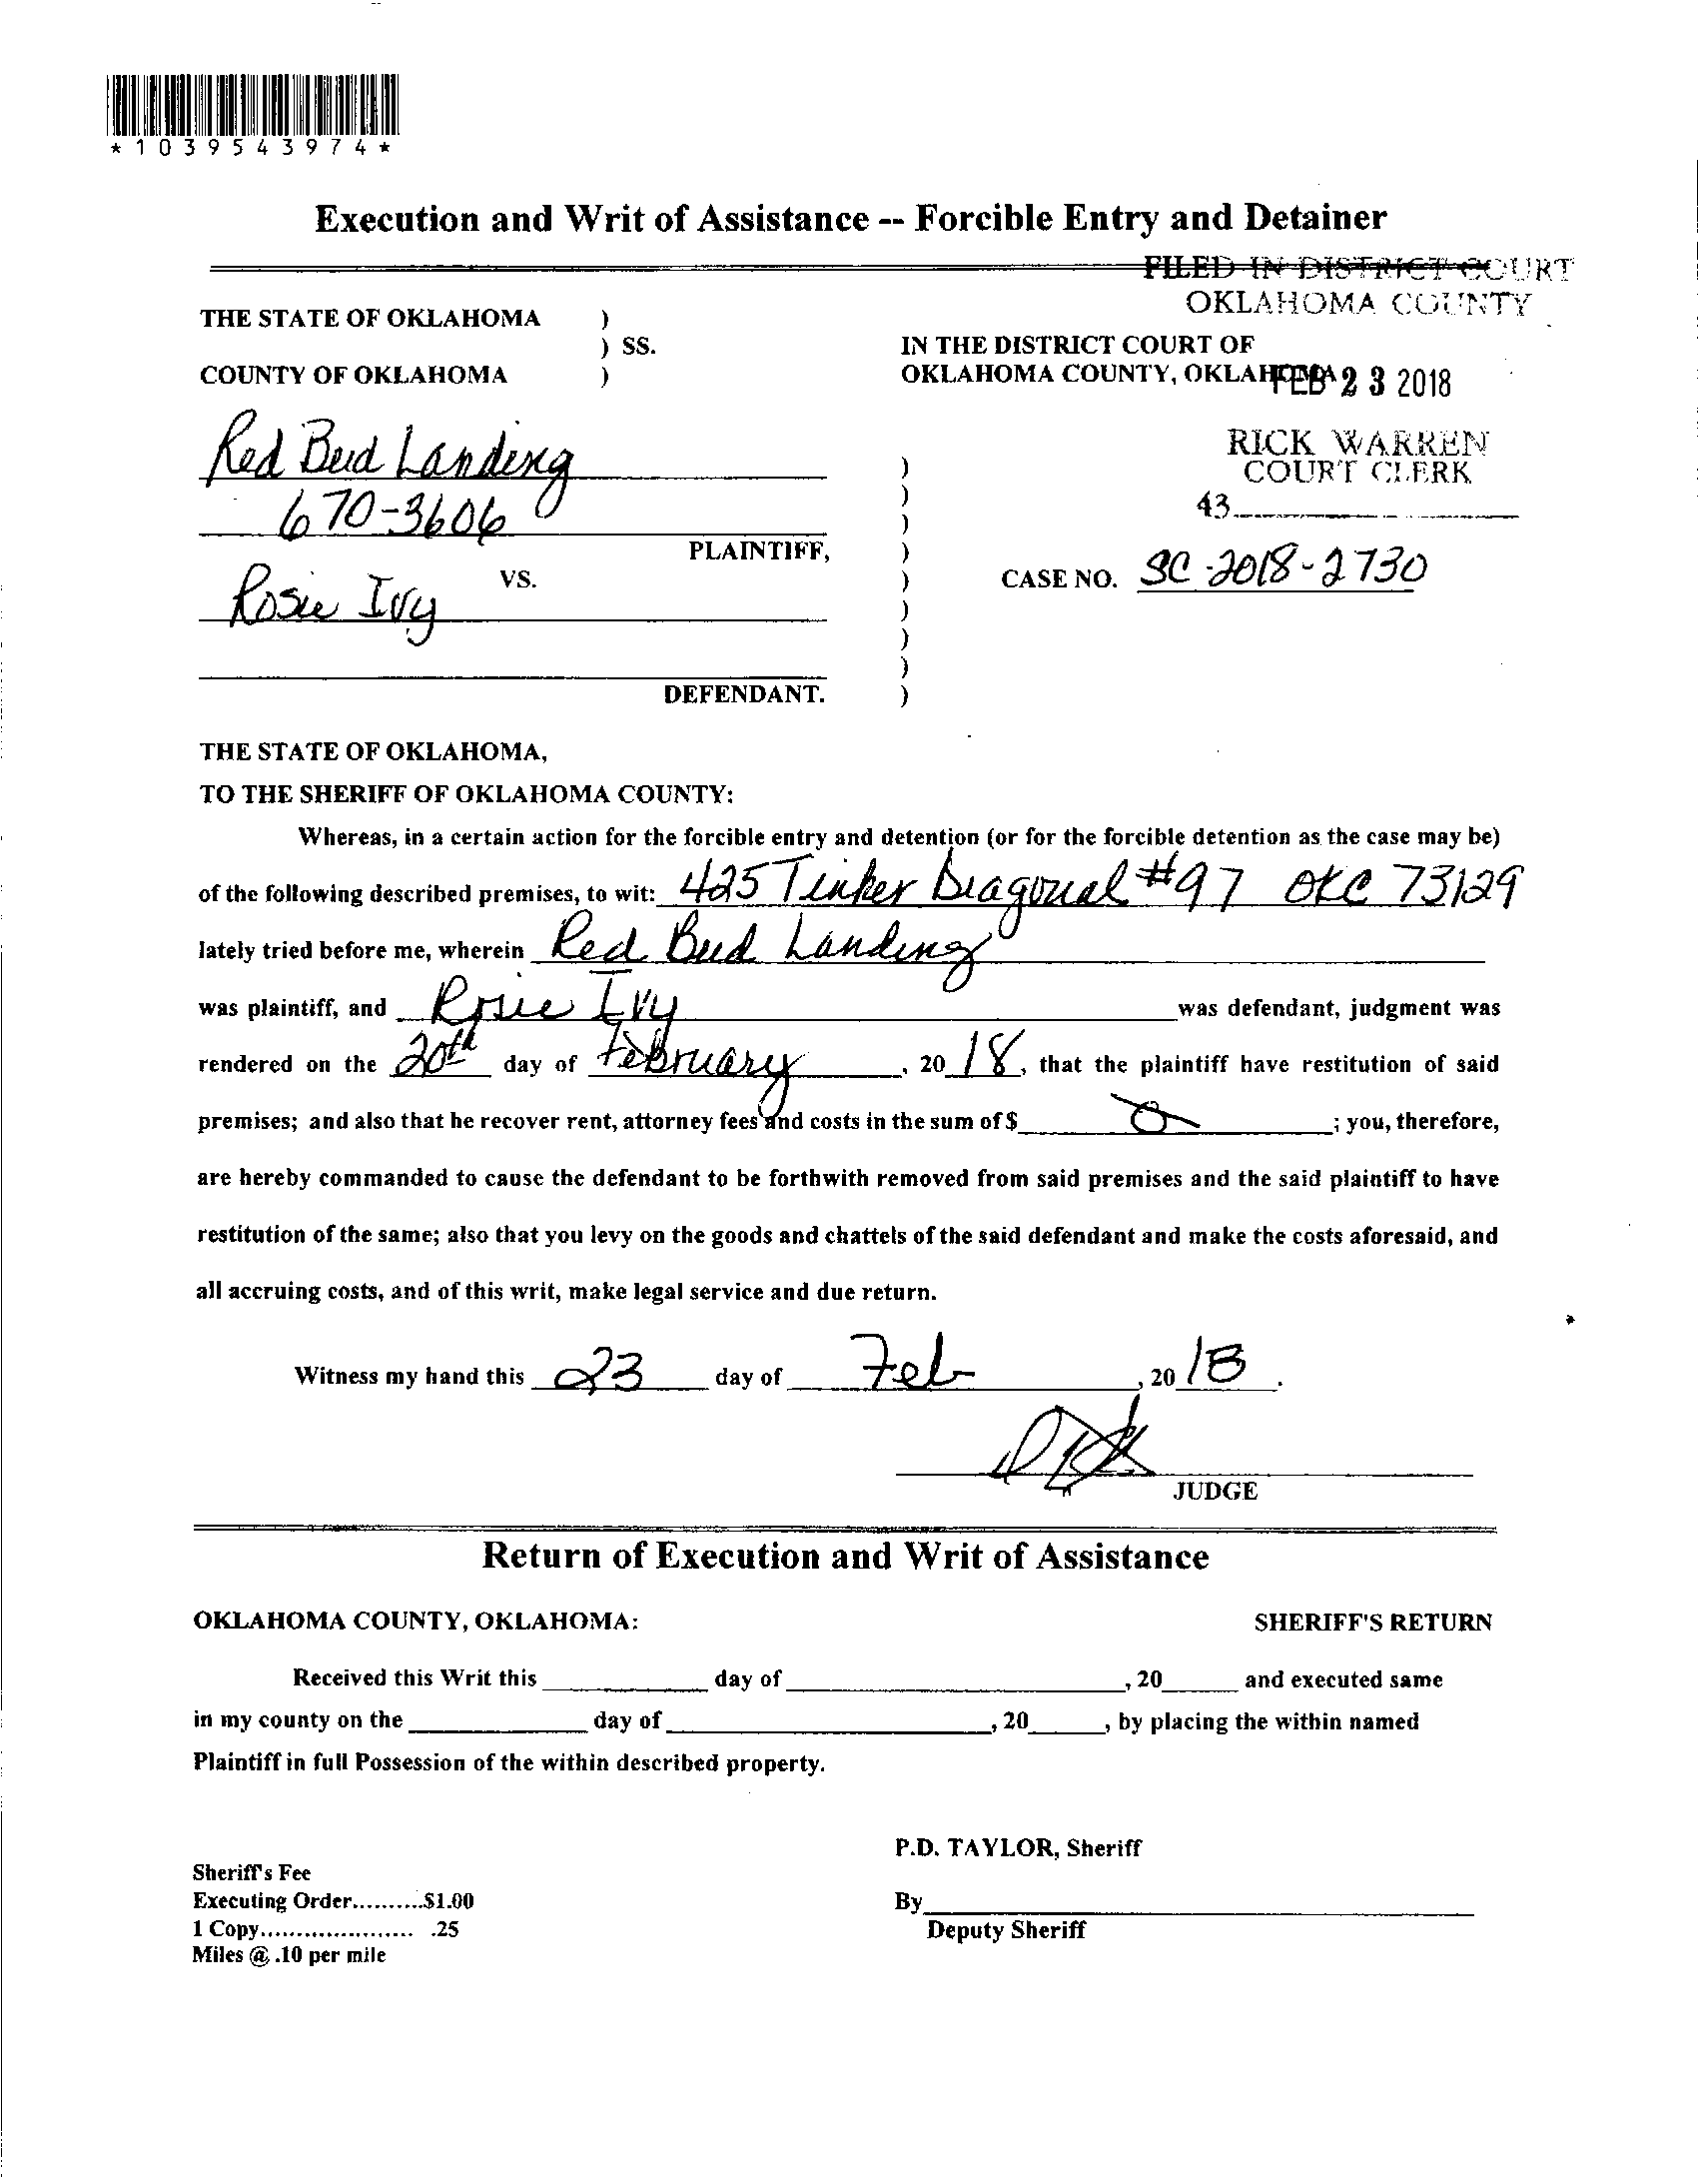 *1039543974*
Execution and Writ of Assistance -- Forcible Entry and Detainer
FILED IN DISTRICT COURT
OKLAHOMA COUNTY
THE STATE OF OKLAHOMA )
) SS.
COUNTY OF OKLAHOMA )
IN THE DISTRICT COURT OF
OKLAHOMA COUNTY, OKLAHOMA
FEB 23 2018
RICK WARREN
COURT CLERK
43
Red Bud Landing
670-3606
PLAINTIFF,
VS.
CASE NO. SC-2018-2730
Rosie Ivy
DEFENDANT.
THE STATE OF OKLAHOMA,
TO THE SHERIFF OF OKLAHOMA COUNTY:
Whereas, in a certain action for the forcible entry and detention (or for the forcible detention as the case may be)
of the following described premises, to wit: 425 Tinker Diagonal #97 OKC 73129
lately tried before me, wherein Red Bud Landing
was plaintiff, and Rosie Ivy was defendant, judgment was
rendered on the 20th day of February, 2018, that the plaintiff have restitution of said
premises; and also that he recover rent, attorney fees and costs in the sum of $ 0; you, therefore,
are hereby commanded to cause the defendant to be forthwith removed from said premises and the said plaintiff to have
restitution of the same; also that you levy on the goods and chattels of the said defendant and make the costs aforesaid, and
all accruing costs, and of this writ, make legal service and due return.
Witness my hand this 23 day of Feb, 2018.
JUDGE
Return of Execution and Writ of Assistance
OKLAHOMA COUNTY, OKLAHOMA: SHERIFF'S RETURN
Received this Writ this ____ day of ____, 20____ and executed same
in my county on the ____ day of ____, 20____, by placing the within named
Plaintiff in full Possession of the within described property.
P.D. TAYLOR, Sheriff
Sheriff's Fee
Executing Order..........$1.00
1 Copy..................... .25
Miles @ .10 per mile
By____
Deputy Sheriff